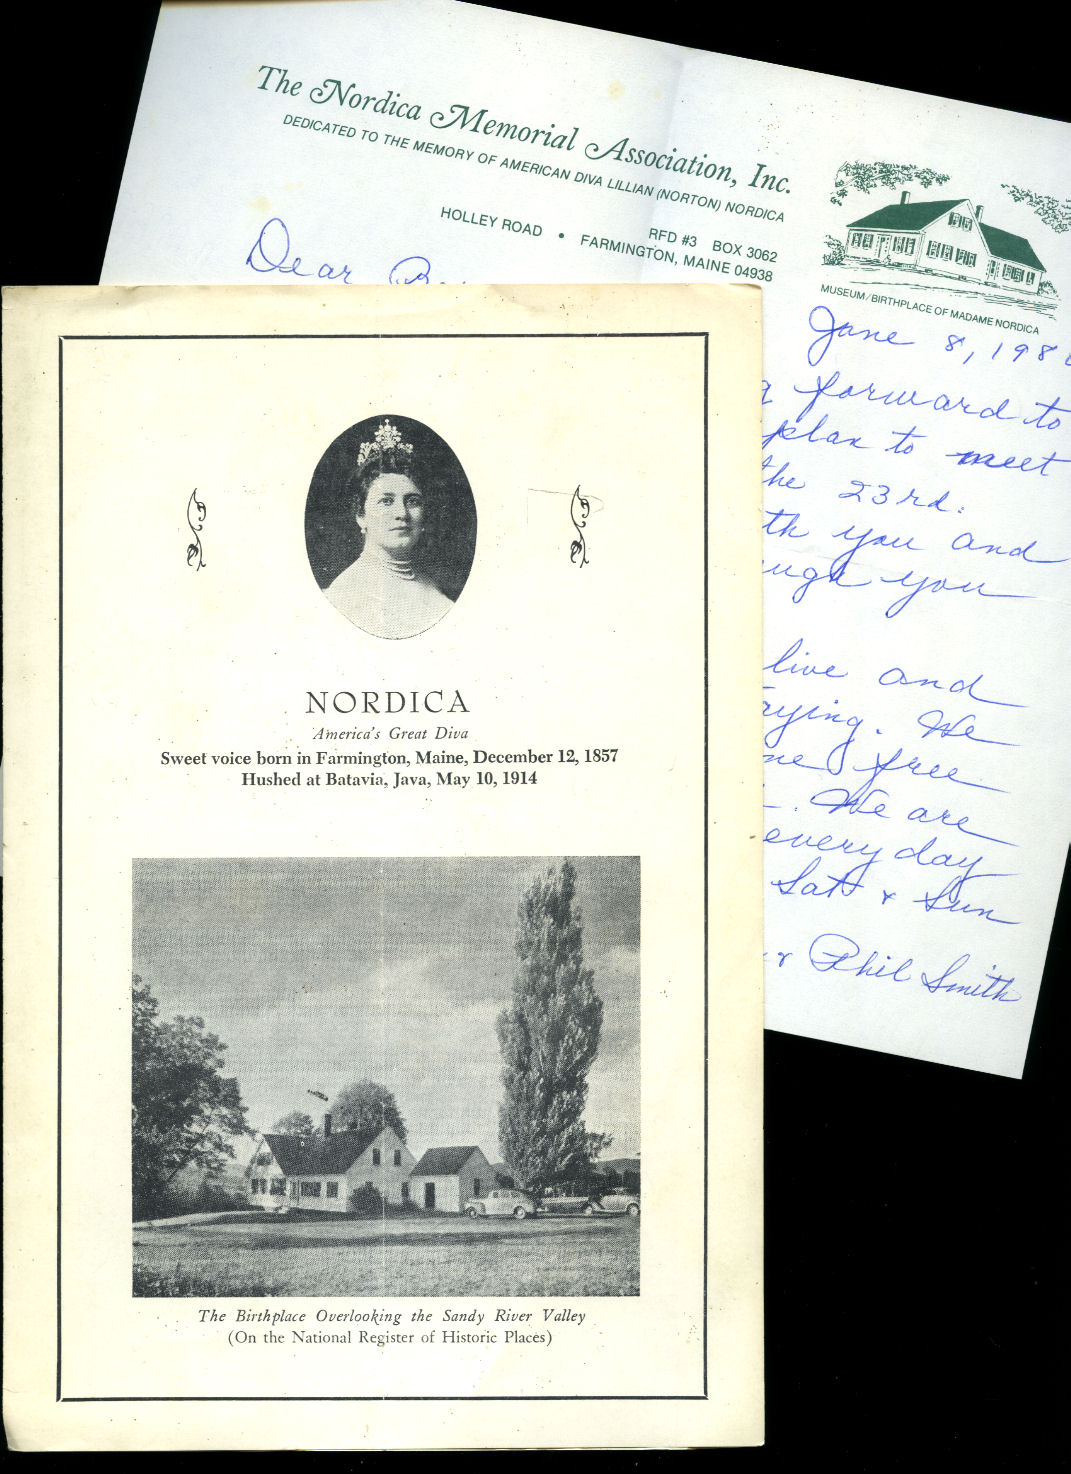 The Nordica Memorial Association, Inc.
DEDICATED TO THE MEMORY OF AMERICAN DIVA LILLIAN (NORTON) NORDICA
RFD #3 BOX 3062
HOLLEY ROAD • FARMINGTON, MAINE 04938
MUSEUM/BIRTHPLACE OF MADAME NORDICA
Dear
June 8, 198
forward to
plan to meet
the 23rd.
th you and
you
live and
aying. We
me free
We are
every day
Sat & Sun
& Phil Smith
NORDICA
America's Great Diva
Sweet voice born in Farmington, Maine, December 12, 1857
Hushed at Batavia, Java, May 10, 1914
The Birthplace Overlooking the Sandy River Valley
(On the National Register of Historic Places)